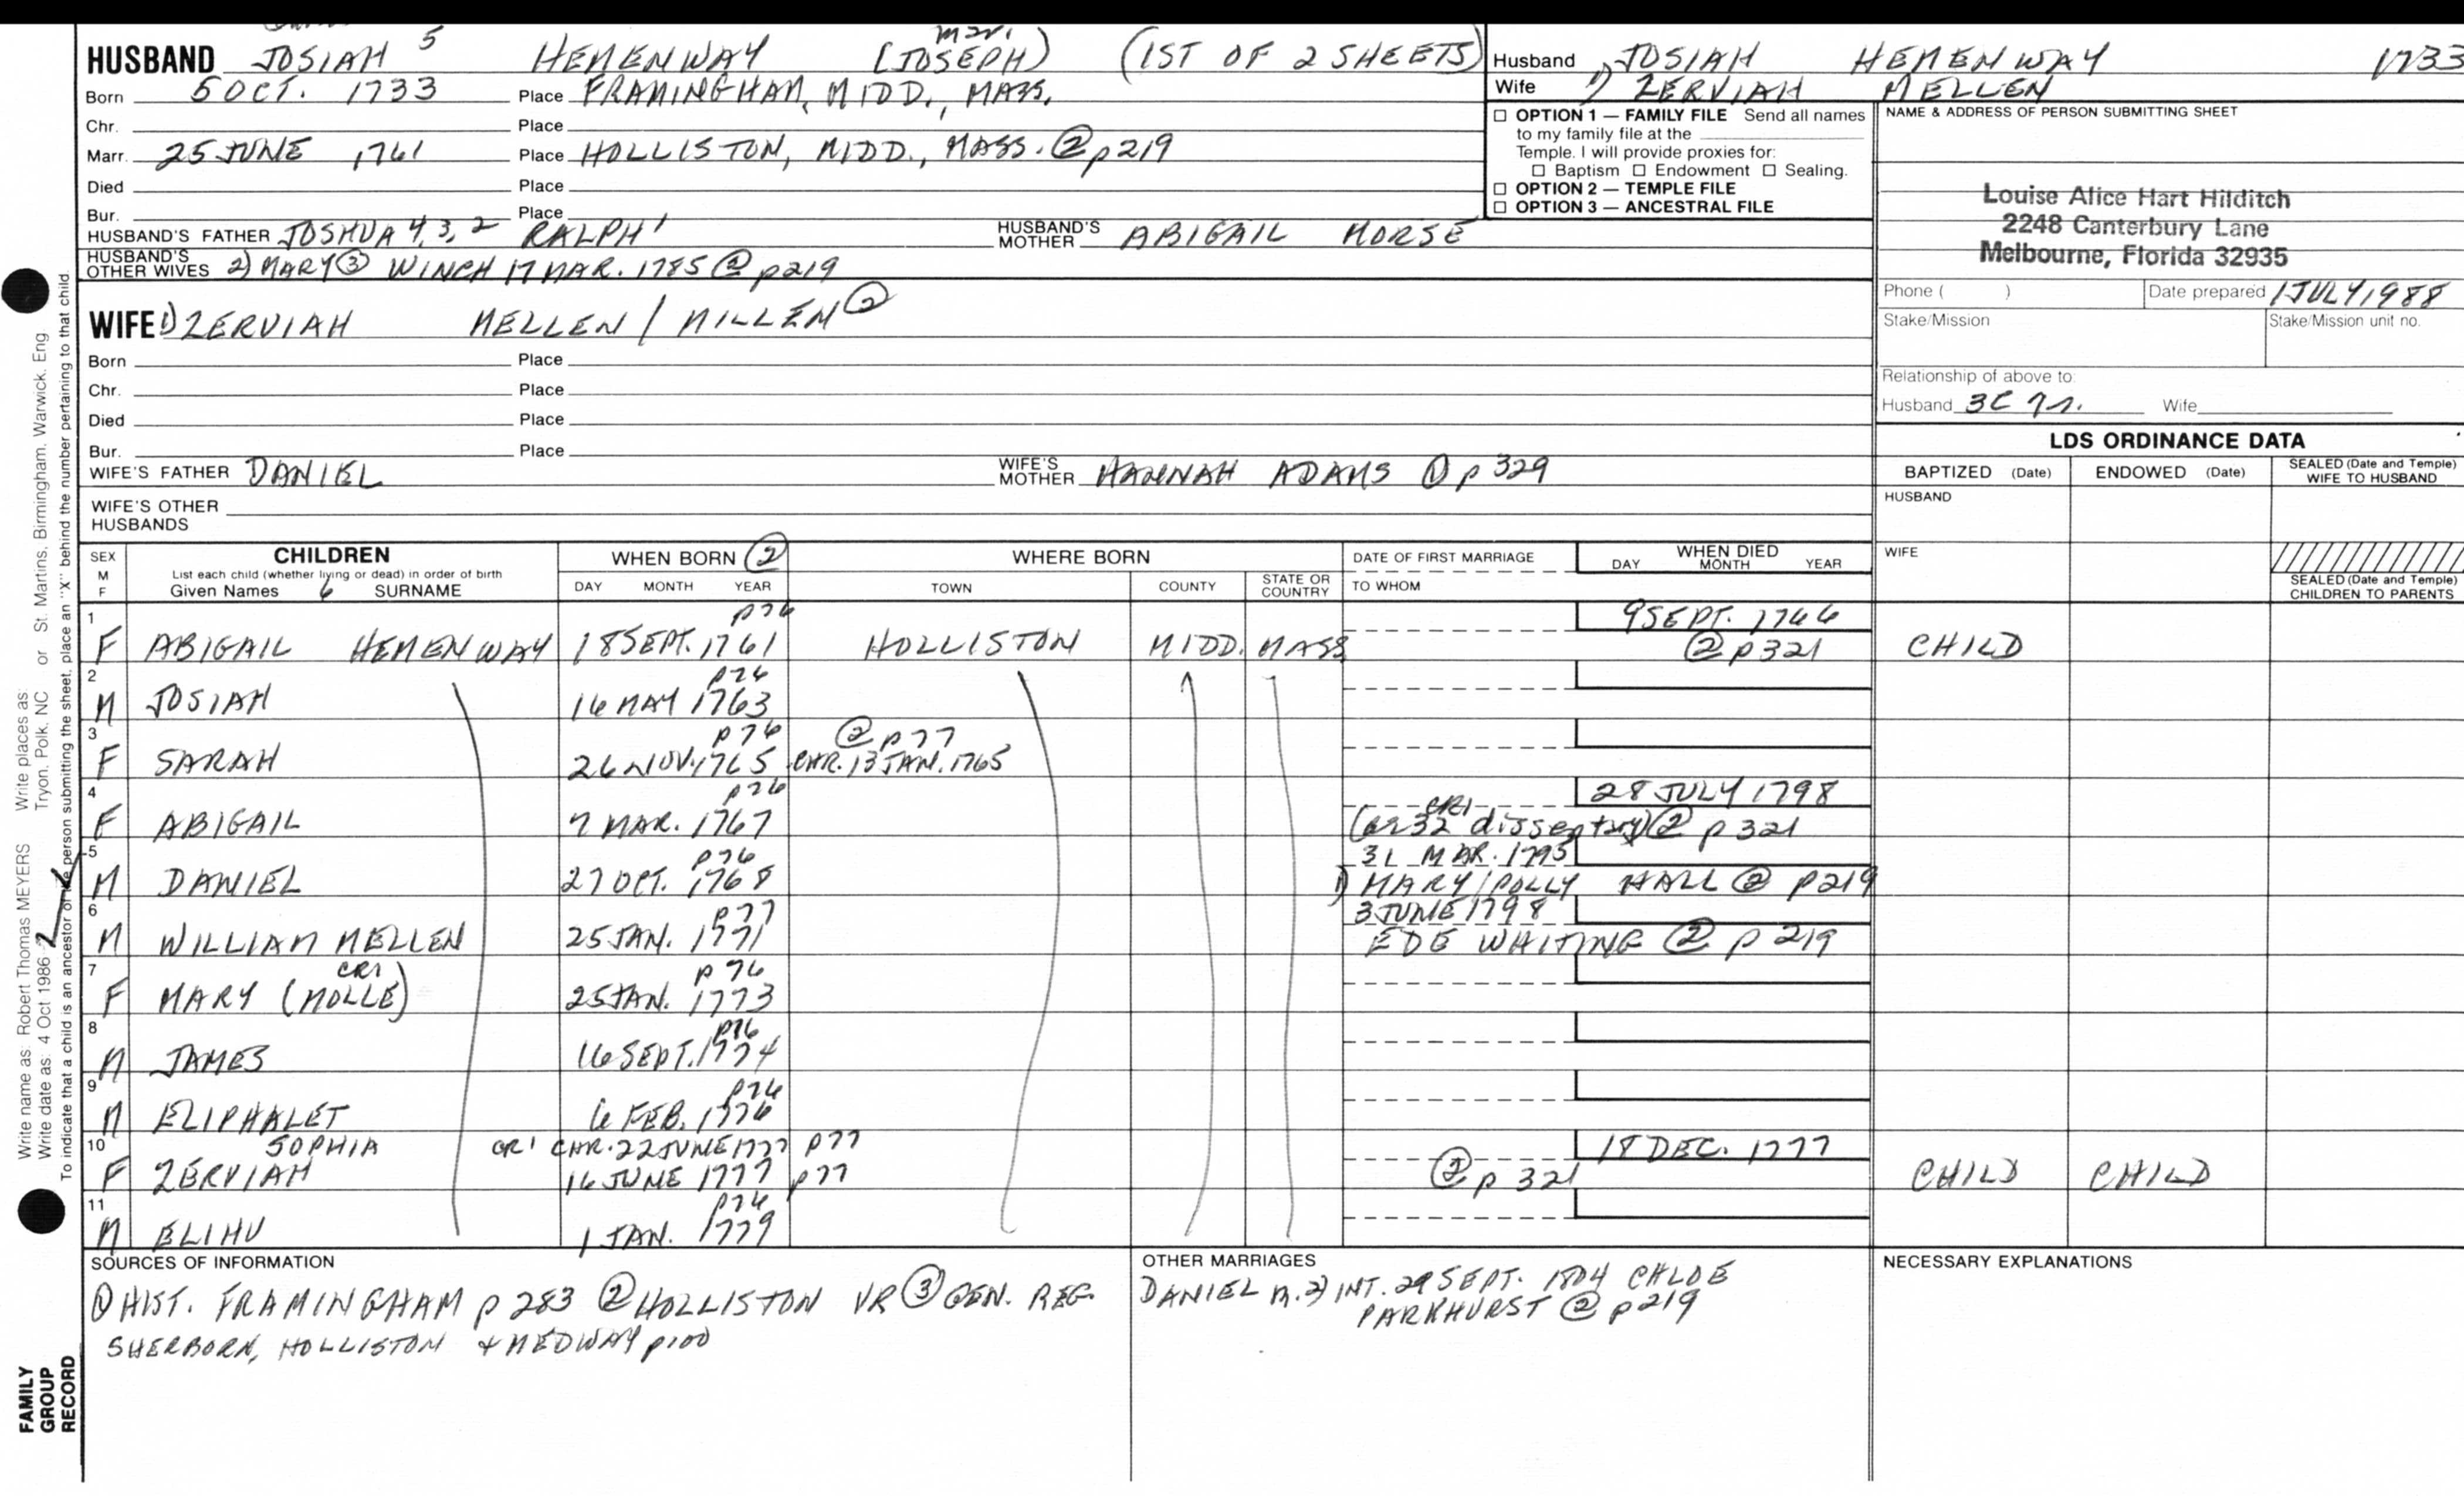 mar.
HUSBAND JOSIAH 5 HEMENWAY (JOSEPH) (1ST OF 2 SHEETS)
Born 5 OCT. 1733 Place FRAMINGHAM, MIDD., MASS.
Chr. Place
Marr. 25 JUNE 1761 Place HOLLISTON, MIDD., MASS. ② p219
Died Place
Bur. Place
HUSBAND'S FATHER JOSHUA 4, 3, 2 RALPH 1 HUSBAND'S MOTHER ABIGAIL MORSE
HUSBAND'S OTHER WIVES 2) MARY ③ WINCH 17 MAR. 1785 ② p219
WIFE 1) ZERVIAH MELLEN / MILLEN ②
Born Place
Chr. Place
Died Place
Bur. Place
WIFE'S FATHER DANIEL WIFE'S MOTHER HANNAH ADAMS ① p 329
WIFE'S OTHER HUSBANDS
Husband JOSIAH HEMENWAY 1733
Wife 1) ZERVIAH MELLEN
☐ OPTION 1 — FAMILY FILE Send all names
to my family file at the
Temple. I will provide proxies for:
☐ Baptism ☐ Endowment ☐ Sealing.
☐ OPTION 2 — TEMPLE FILE
☐ OPTION 3 — ANCESTRAL FILE
NAME & ADDRESS OF PERSON SUBMITTING SHEET
Louise Alice Hart Hilditch
2248 Canterbury Lane
Melbourne, Florida 32935
Phone ( ) Date prepared 1 JULY 1988
Stake/Mission Stake/Mission unit no.
Relationship of above to:
Husband 3C Wife
LDS ORDINANCE DATA
BAPTIZED (Date) ENDOWED (Date) SEALED (Date and Temple) WIFE TO HUSBAND
HUSBAND
WIFE
SEALED (Date and Temple) CHILDREN TO PARENTS
SEX M F CHILDREN WHEN BORN ② WHERE BORN DATE OF FIRST MARRIAGE WHEN DIED
List each child (whether living or dead) in order of birth
Given Names 6 SURNAME DAY MONTH YEAR TOWN COUNTY STATE OR COUNTRY TO WHOM DAY MONTH YEAR
1 p76 9 SEPT. 1766
F ABIGAIL HEMENWAY 18 SEPT. 1761 HOLLISTON MIDD. MASS ② p321 CHILD
2 p76
M JOSIAH 16 MAY 1763
3 p76 ② p77
F SARAH 26 NOV. 1765 CHR. 13 JAN. 1765
4 p76 28 JULY 1798
F ABIGAIL 7 MAR. 1767 CR1 ② p 321
5 p76 31 MAR. 1795
M DANIEL 27 OCT. 1768 1) MARY/POLLY HALL ② p219
6 p77 3 JUNE 1798
M WILLIAM MELLEN 25 JAN. 1771 EDE WHITING ② p 219
7 CR1 p 76
F MARY (MOLLE) 25 JAN. 1773
8 p76
M JAMES 16 SEPT. 1774
9 p76
M ELIPHALET 6 FEB. 1776
10 SOPHIA CR1 CHR. 22 JUNE 1777 p77 18 DEC. 1777
F ZERVIAH 16 JUNE 1777 p77 ② p 321 CHILD CHILD
11 p76
M ELIHU 1 JAN. 1779
SOURCES OF INFORMATION
① HIST. FRAMINGHAM p 283 ② HOLLISTON VR ③ GEN. REG.
SHERBORN, HOLLISTON + MEDWAY p100
OTHER MARRIAGES
DANIEL m. 2) INT. 29 SEPT. 1804 CHLOE
PARKHURST ② p219
NECESSARY EXPLANATIONS
Write name as: Robert Thomas MEYERS Write places as: Tryon, Polk, NC or St. Martins, Birmingham, Warwick, Eng
Write date as: 4 Oct 1986
To indicate that a child is an ancestor of the person submitting the sheet, place an "X" behind the number pertaining to that child.
FAMILY
GROUP
RECORD